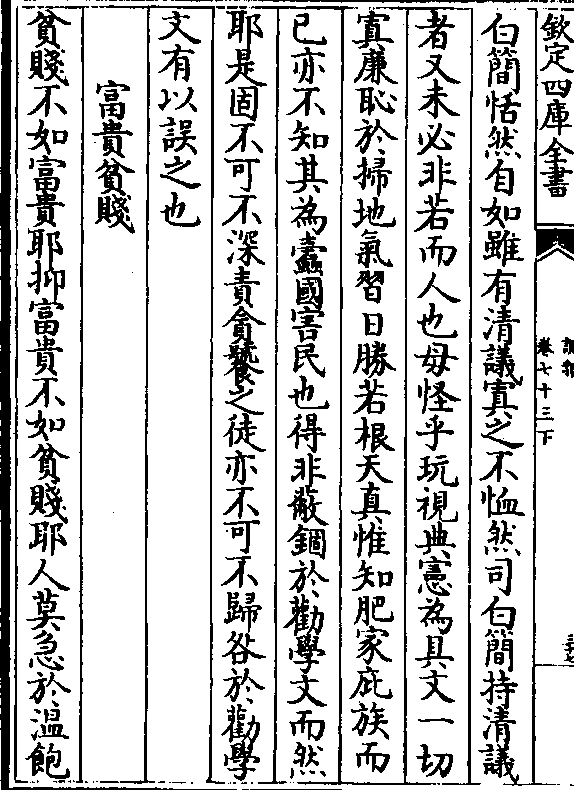 欽定四庫全書
說郛
卷七十三下
白簡恬然自如雖有清議寘之不恤然司白簡持清議
者又未必非若而人也毋怪乎玩視典憲為具文一切
寘亷恥於掃地氣習日勝若根天真惟知肥家庇族而
已亦不知其為蠧國害民也得非蔽錮於勸學文而然
耶是固不可不深責貪饕之徒亦不可不歸咎於勸學
文有以誤之也
富貴貧賤
貧賤不如富貴耶抑富貴不如貧賤耶人莫急於溫飽